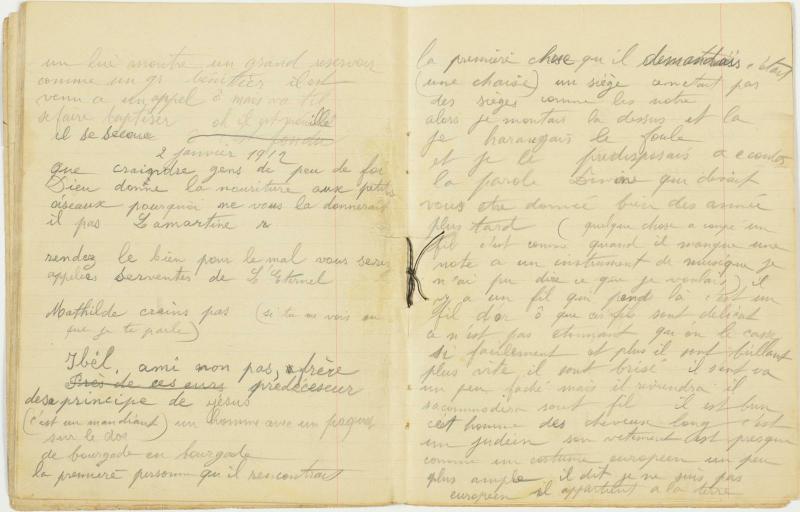 un lui montre un grand reservoir
comme un gr bénitier il est
venu a un appel ô mais va t'il
se faire baptiser oh il est mouillé
il se secoue
2 janvier 1912
que craigndre gens de peu de foi
Dieu donne la nouriture aux petits
oiseaux pourquoi ne vous la donnerait
il pas Lamartine r
rendez le bien pour le mal vous seres
appelées Serventes de L Eternel
Mathilde crains pas (si tu me vois ou
que je te parle)
Ibél, ami non pas, frère
Près de ces eurs prédéceseur
des principe de Jésus
(c'est un mandiant) un homme avec un paquet
sur le dos
de bourgade en bourgade
la première personne qu'il rencontrait
la première chose qu'il demandais, c'était
(une chaise) un siège cenetait pas
des sièges comme les notre
alors je montais la dessus et la
je harangais le foule
et je le predisposais a ecouter
la parole Divine qui devait
vous etre donnée bien des année
plus tard (quelque chose a coupé un
fil c'est comme quand il manque une
note a un instrument de musique je
n'ai pu dire ce que je voulais) il
y a un fil qui pend la c'est un
fil d'or ô que ces fils sont délicat
ce n'est pas etonnant qu'on le casse
si facilement et plus il sont brillant
plus vite il sont brisé il sent va
un peu faché mais il reviendra il
racommodera sont fil il est bien
cest homme des cheveux long c'est
un judéin son vêtement est presque
comme un costume européen un peu
plus ample il dit je ne suis pas
européen il appartient a la terre